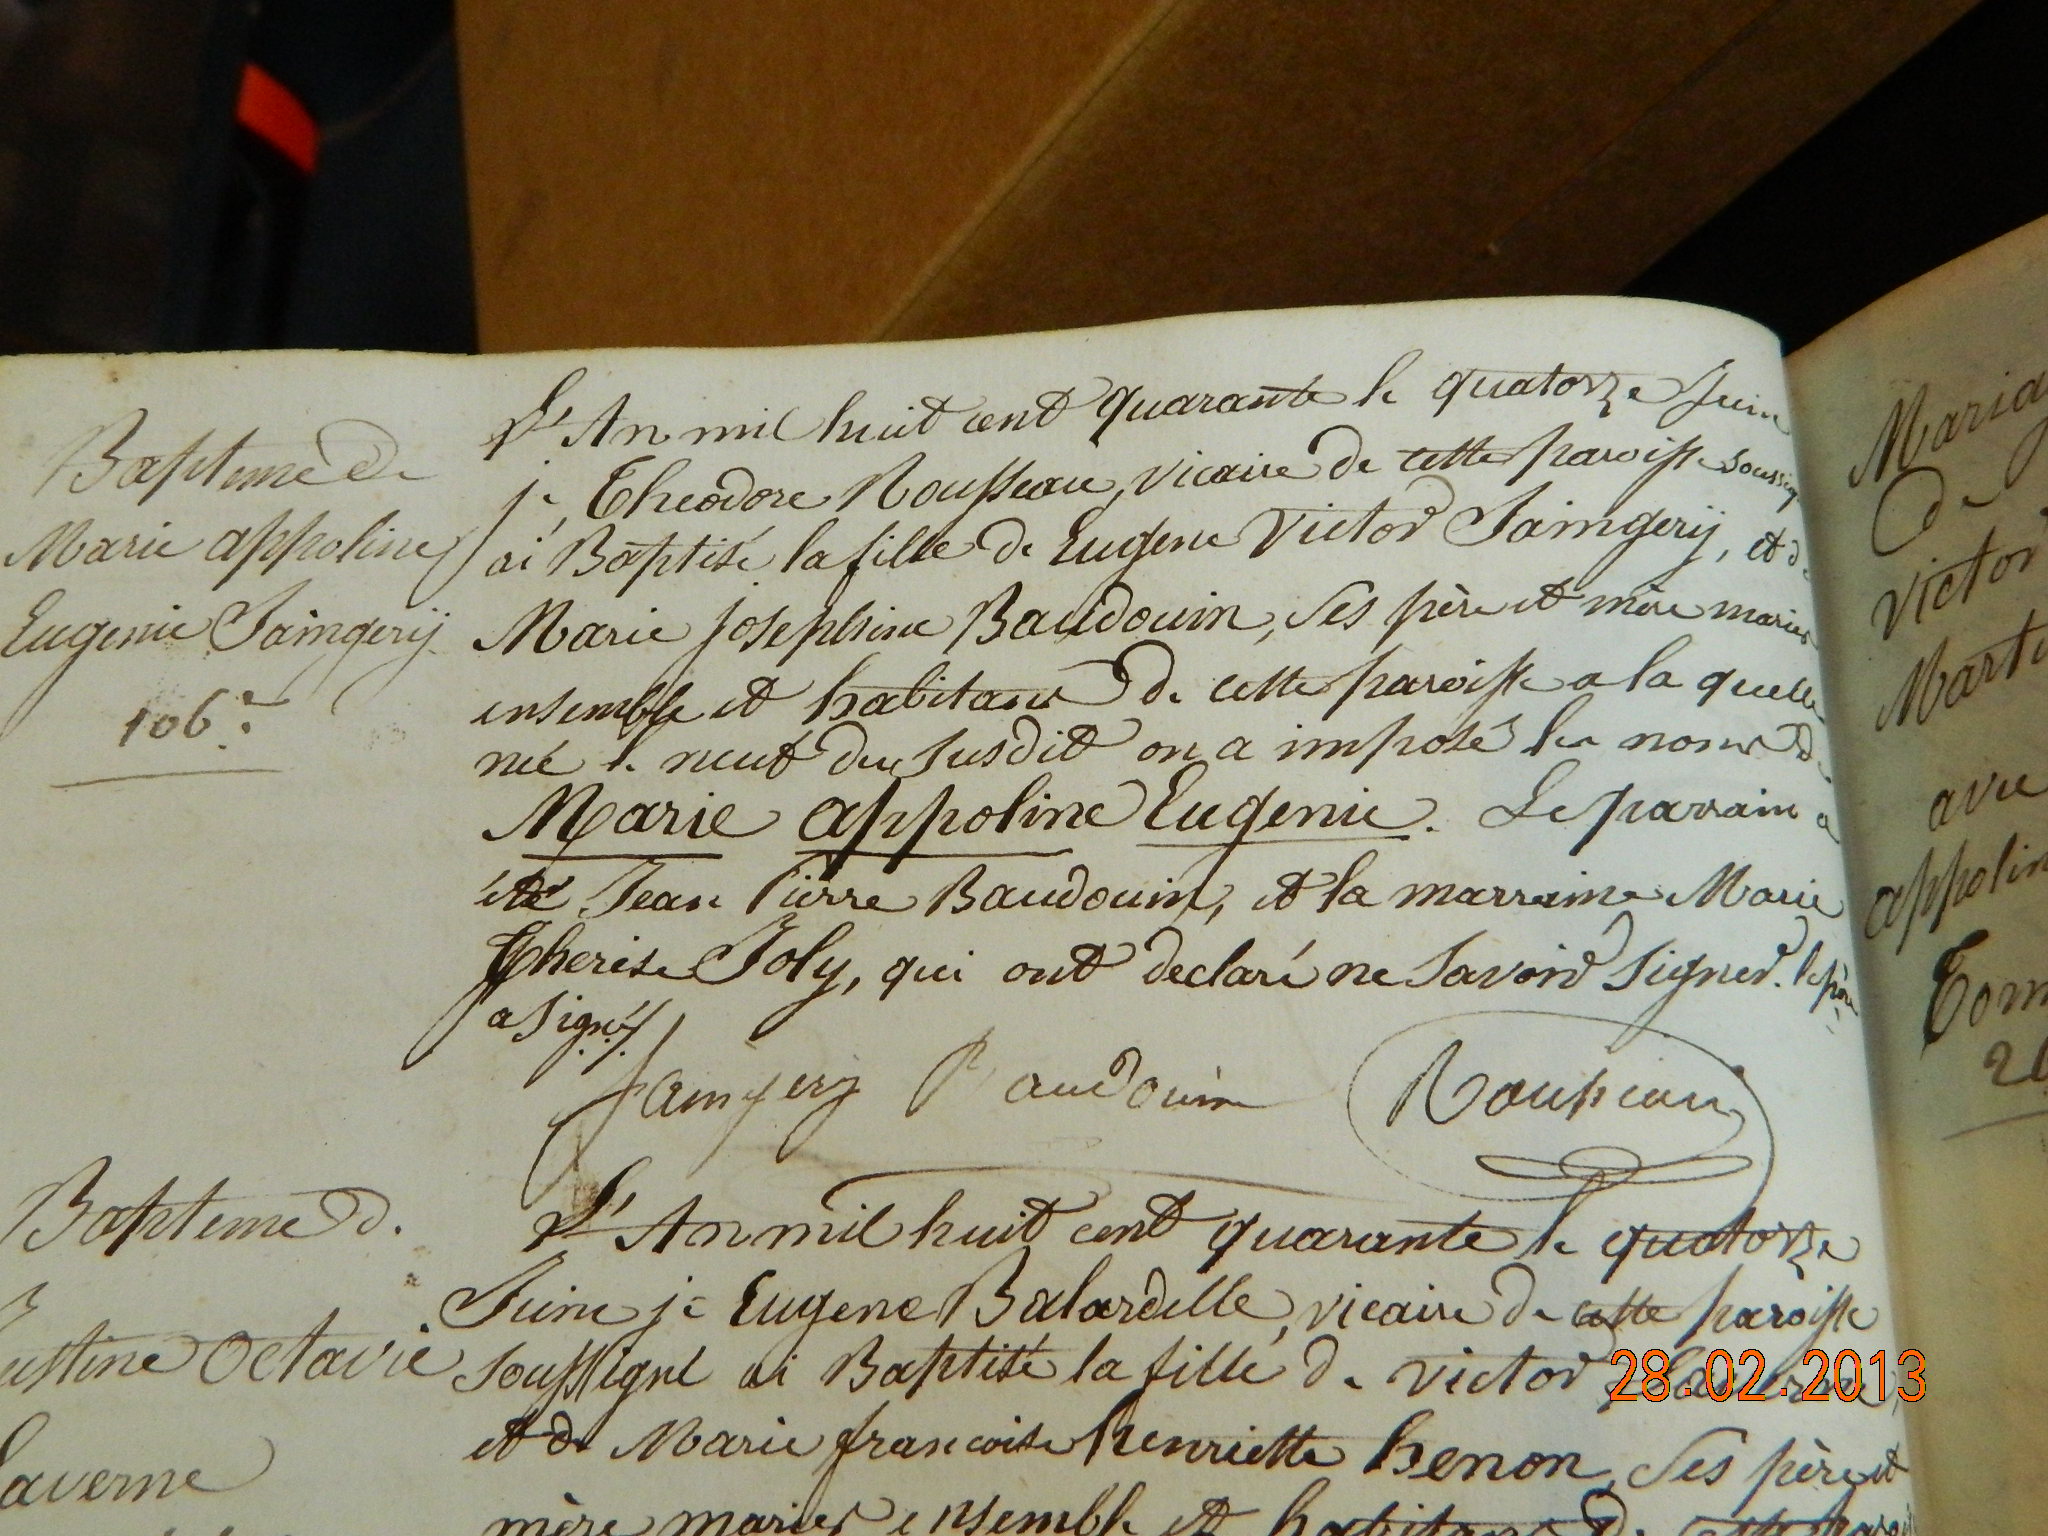 Bapteme de
Marie appoline
Eugenie Saingerÿ
106.e
L'An mil huit cent quarante le quatorze Juin
je Theodore Rousseau, vicaire de cette paroisse soussig
ai Baptisé la fille de Eugene Victor Saingerÿ, et de
Marie josephine Baudouin, Ses père et mère mariés
ensemble et habitans de cette paroisse a la quelle
né le neuf du Susdit on a imposé les noms de
Marie appoline Eugenie. Le parrain a
été Jean Pierre Baudouin, et la marraine Marie
Therese Joly, qui ont declaré ne Savoir Signer. le père
a Signé
Saingery Baudouin Rousseau
Bapteme de
ustine Octavie
Laverne
L'An mil huit cent quarante le quatorze
Juin je Eugene Balardelle, vicaire de cette paroisse
soussigné ai Baptisé la fille de Victor Laverne,
et de Marie francoise henriette henon, Ses père et
mère mariés ensemble et habitans de cette paroi
Maria
de
Victor
Mart
avec
appolin
Tom
28.02.2013